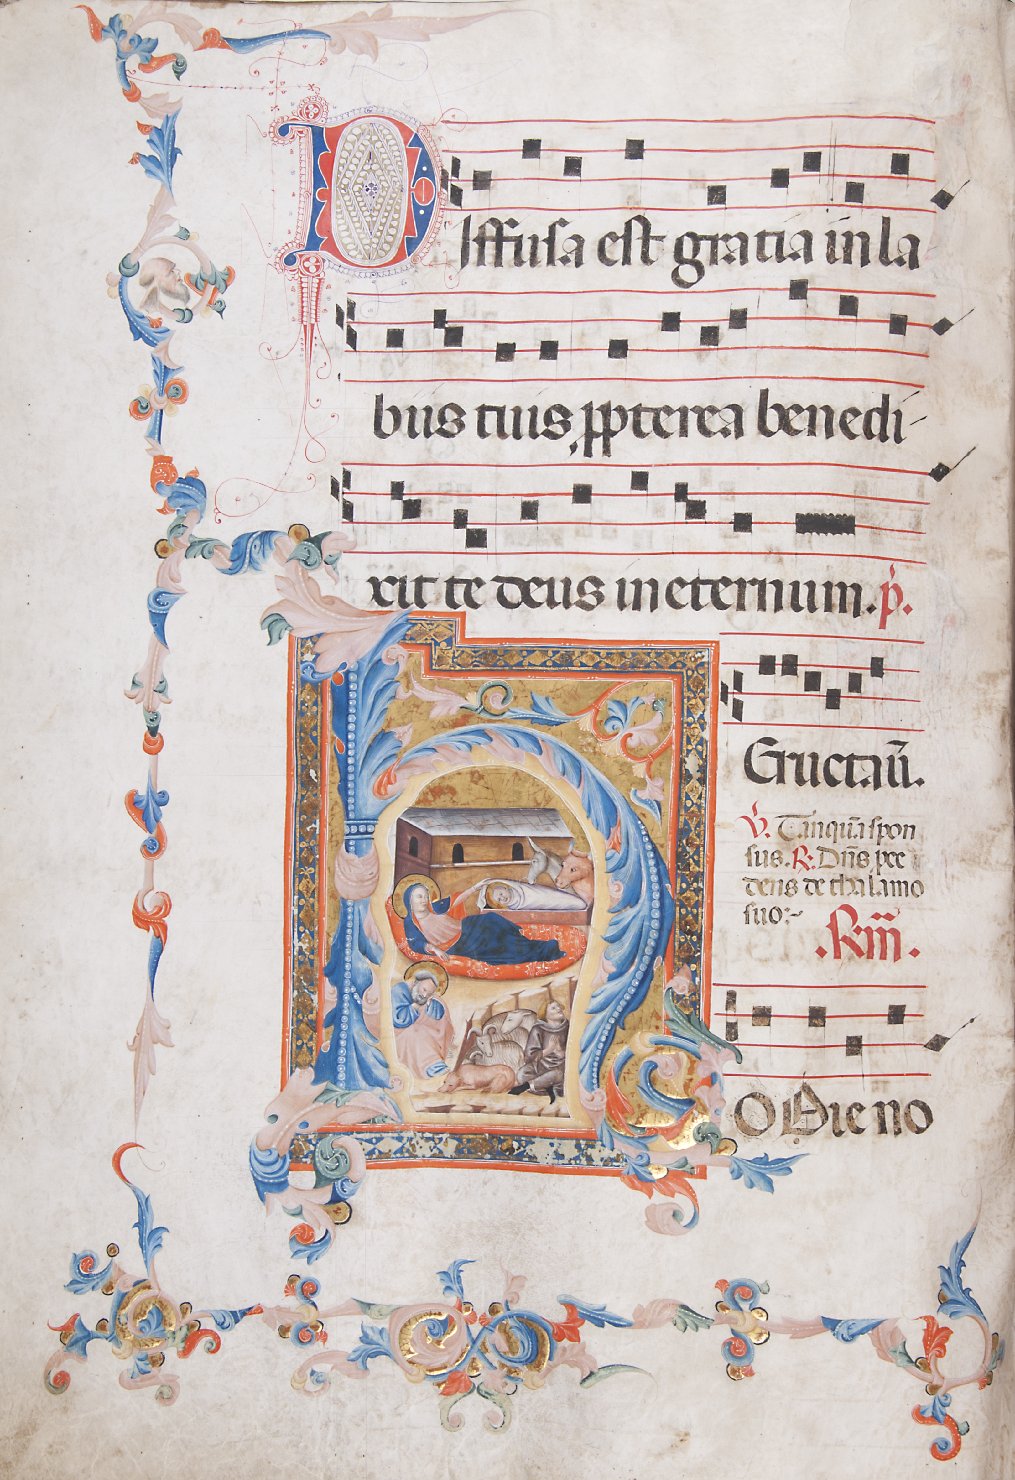 Diffusa est gratia in la
bus tuis ꝓpterea benedi
xit te deus in eternum. p̃.
Eructaũ.
℣. Tanquã spon
sus. ℟. Dñs ꝓce
dens de thalamo
suo.
.℟m̃.
HODie no